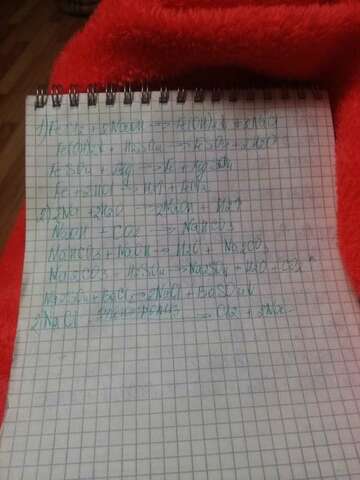 1) FeCl2 + 2NaOH → Fe(OH)2↓ + 2NaCl
Fe(OH)2 + H2SO4 → FeSO4 + 2H2O
FeSO4 + Mg → Fe + MgSO4
Fe + 2HCl → H2↑ + FeCl2
2Na + 2H2O → 2NaOH + H2↑
NaOH + CO2 → NaHCO3
NaHCO3 + NaOH → H2O + Na2CO3
Na2CO3 + H2SO4 → Na2SO4 + H2O + CO2↑
Na2SO4 + BaCl2 → 2NaCl + BaSO4↓
2NaCl → Cl2 + 2Na